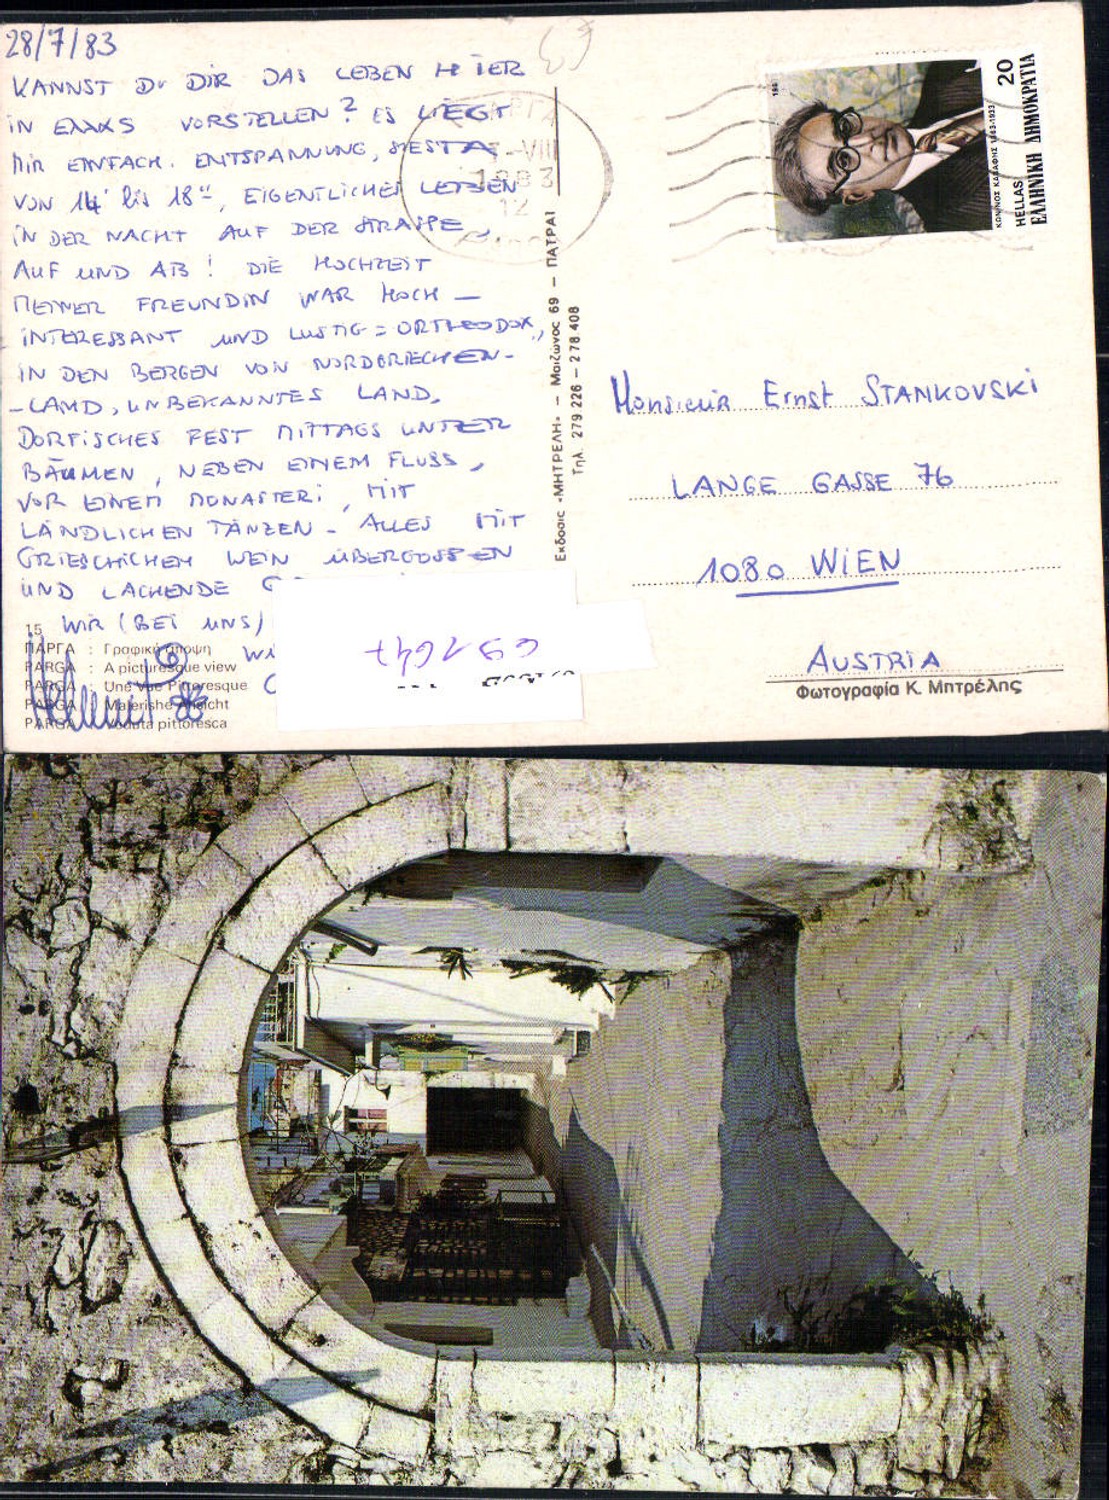 28/7/83
KANNST DU DIR DAS LEBEN HIER
IN ΕΛΛΑS VORSTELLEN? ES LIEGT
MIR EINFACH. ENTSPANNUNG, SIESTA
VON 14 bis 18, EIGENTLICHES LEBEN
IN DER NACHT AUF DER STRASSE,
AUF UND AB! DIE HOCHZEIT
MEINER FREUNDIN WAR HOCH-
INTERESSANT UND LUSTIG = ORTHODOX,
IN DEN BERGEN VON NORDGRIECHEN-
-LAND, UNBEKANNTES LAND,
DORFISCHES FEST MITTAGS UNTER
BÄUMEN, NEBEN EINEM FLUSS,
VOR EINEM MONASTERI, MIT
LÄNDLICHEN TÄNZEN - ALLES MIT
GRIESCHICHEM WEIN ÜBERGOSSEN
UND LACHENDE
WIR (BEI UNS)
15
ΠΑΡΓΑ : Γραφική άποψη
PARGA : A picturesque view
PARGA : Une Vue Pittoresque
PARGA : Malerishe Ansicht
PARGA : Veduta pittoresca
Helmut
Εκδοσις «ΜΗΤΡΕΛΗ» – Μαιζώνος 69 – ΠΑΤΡΑΙ
Τηλ. 279 226 – 278.408
1983
12
ΚΩΝ/ΝΟΣ ΚΑΒΑΦΗΣ 1863-1933
HELLAS 20
ΕΛΛΗΝΙΚΗ ΔΗΜΟΚΡΑΤΙΑ
Monsieur Ernst STANKOVSKI
LANGE GASSE 76
1080 WIEN
AUSTRIA
Φωτογραφία Κ. Μητρέλης